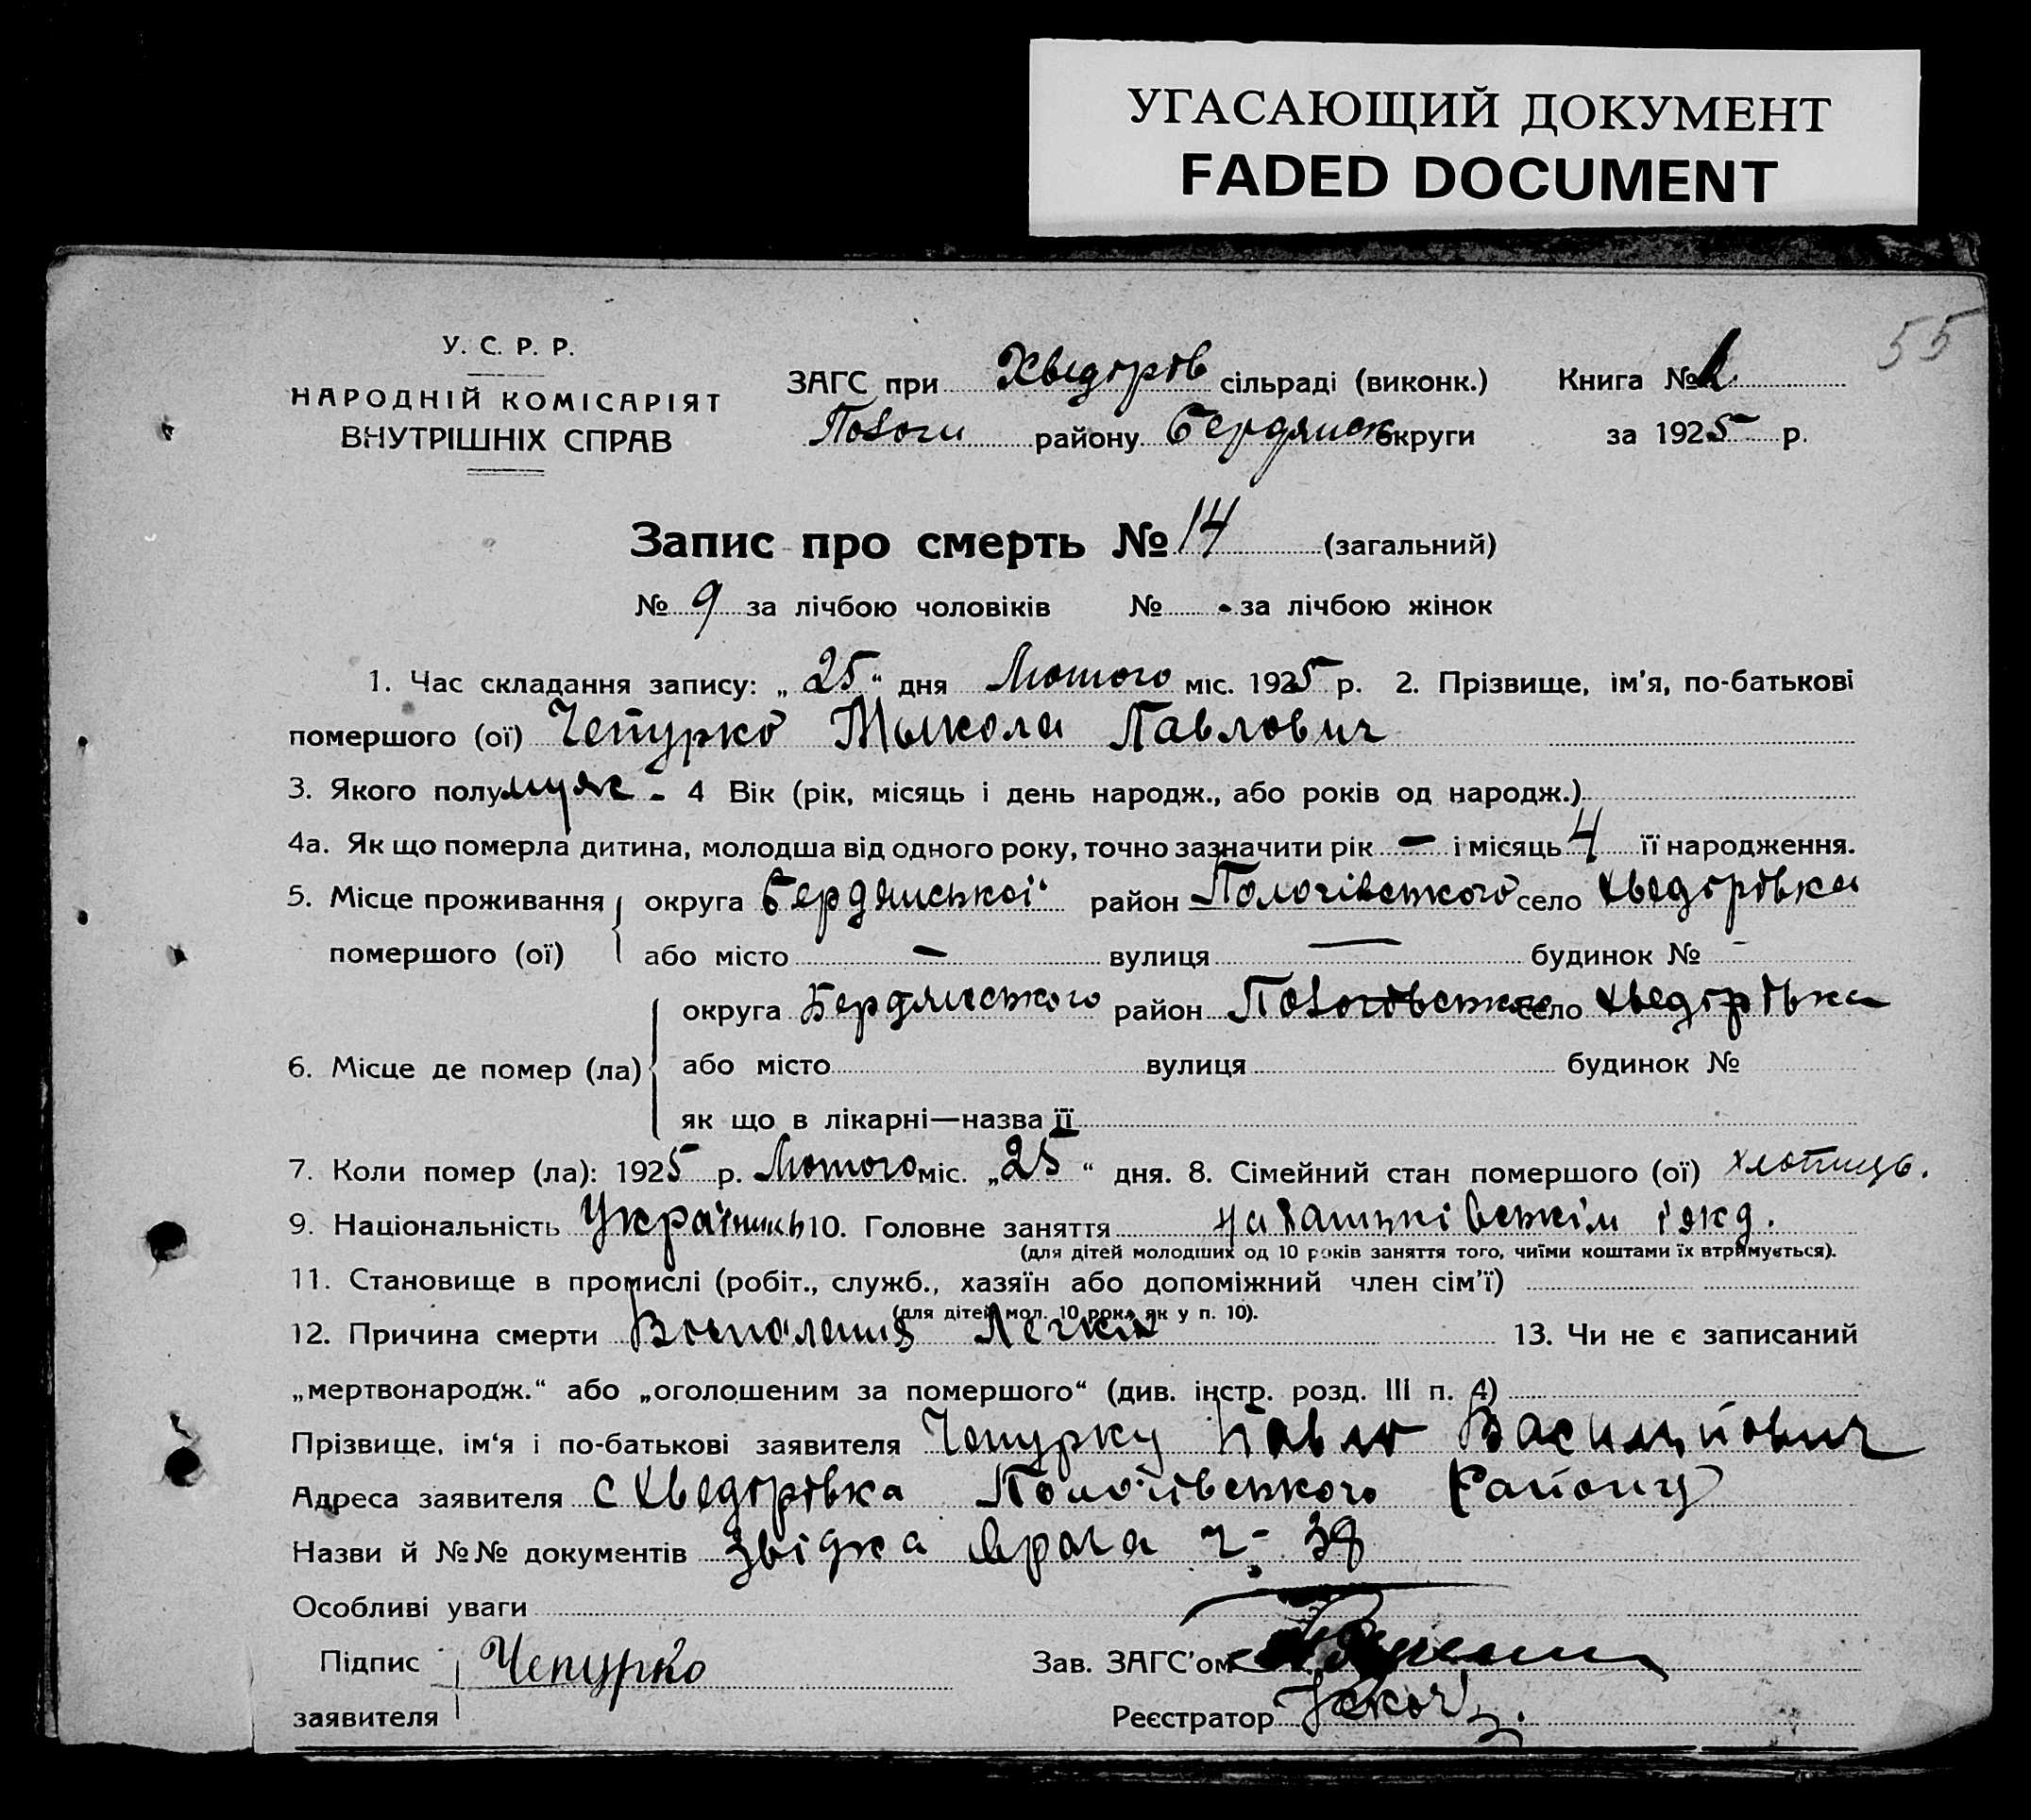 УГАСАЮЩИЙ ДОКУМЕНТ
FADED DOCUMENT
55
У. С. Р. Р.
НАРОДНІЙ КОМІСАРІЯТ
ВНУТРІШНІХ СПРАВ
ЗАГС при Хведорів сільраді (виконк.) Книга №
Пологи району Бердянск округи за 1925 р.
Запис про смерть № 14 (загальний)
№ 9 за лічбою чоловіків № - за лічбою жінок
1. Час складання запису: „ 25 “ дня Лютого міс. 1925 р. 2. Прізвище, ім'я, по-батькові
помершого (ої) Чепурко Мыкола Павлович
3. Якого полу муж - 4 Вік (рік, місяць і день народж., або років од народж.)
4а. Як що померла дитина, молодша від одного року, точно зазначити рік — і місяць 4 її народження.
5. Місце проживання округа Бердянської район Пологівського село Хведорівка
помершого (ої) або місто — вулиця — будинок № -
округа Бердянського район Пологівського село Хведорівка
6. Місце де помер (ла) або місто вулиця будинок №
як що в лікарні—назва її
7. Коли помер (ла): 1925 р. Лютого міс. „25“ дня. 8. Сімейний стан помершого (ої) хлопиць.
9. Національність Українець 10. Головне заняття на батьківськім
(для дітей молодших од 10 років заняття того, чиїми коштами їх втримується).
11. Становище в промислі (робіт., служб., хазяїн або допоміжний член сім'ї)
(для дітей мол. 10 рок. як у п. 10).
12. Причина смерти Воспаления Легких 13. Чи не є записаний
„мертвонародж.“ або „оголошеним за помершого“ (див. інстр. розд. III п. 4)
Прізвище, ім‘я і по-батькові заявителя Чепурку Павло
Адреса заявителя с Хведорівка Пологівського Району
Назви й №№ документів Звідка врача ч- 38
Особливі уваги
Підпис Чепурко Зав. ЗАГС'ом
заявителя Реєстратор